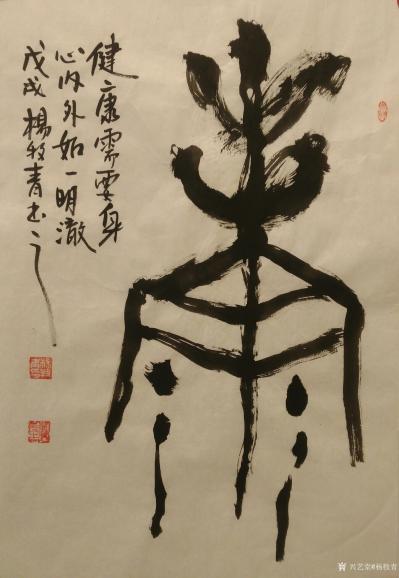 康
健康需要身
心内外如一明澈
戊戌楊牧青书
兴艺堂#杨牧青